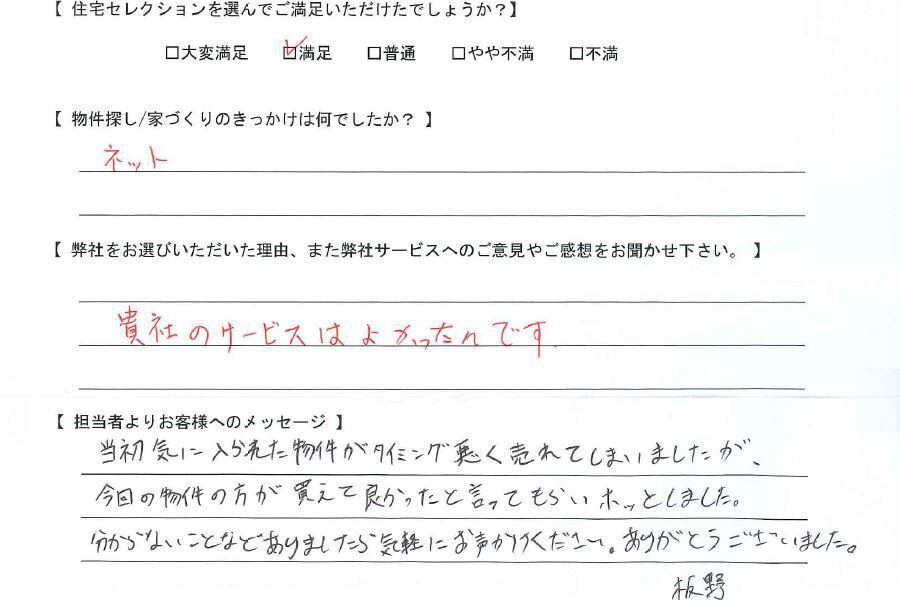 【 住宅セレクションを選んでご満足いただけたでしょうか？】
□大変満足 ☑満足 □普通 □やや不満 □不満
【 物件探し/家づくりのきっかけは何でしたか？ 】
ネット
【 弊社をお選びいただいた理由、また弊社サービスへのご意見やご感想をお聞かせ下さい。 】
貴社のサービスはよかったんです
【 担当者よりお客様へのメッセージ 】
当初気に入られた物件がタイミング悪く売れてしまいましたが、
今回の物件の方が買えて良かったと言ってもらいホッとしました。
分からないことなどありましたら気軽にお声かけください。ありがとうございました。
板野